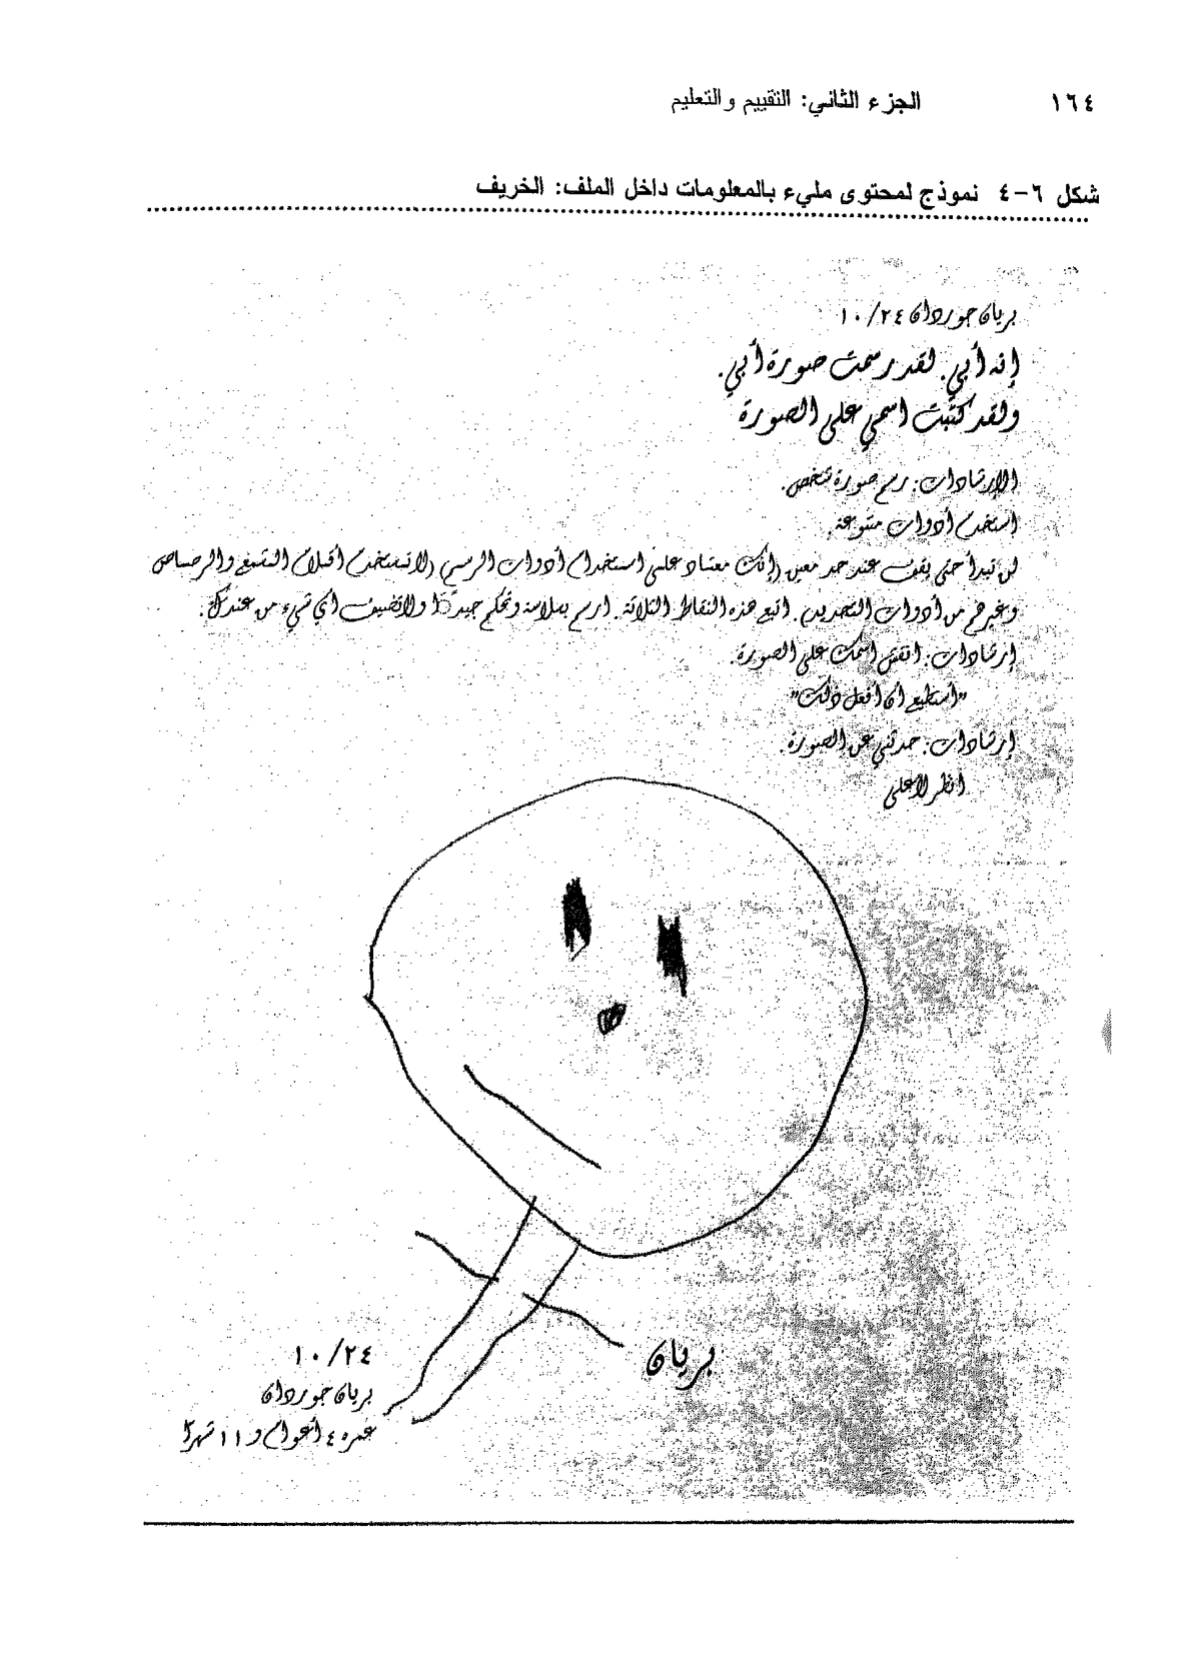 ١٦٤ الجزء الثاني: التقييم والتعليم
شكل ٦-٤ نموذج لمحتوى مليء بالمعلومات داخل الملف: الخريف
بريان جوردان ١٠/٢٤
إنه أبي. لقد رسمت صورة أبي.
ولقد كتبت اسمي على الصورة
الإرشادات: رسم صورة شخص.
استخدم أدوات متنوعة.
لن تبدأ حتى يقف عند حد معين (إنك معتاد على استخدام أدوات الرسم) (لا تستخدم أقلام الشمع والرصاص
وغيرهم من أدوات التحديد). اتبع هذه النقاط الثلاثة. ارسم بسلاسة وتحكم جيدًا ولا تضيف أي شيء من عندك.
إرشادات: انقش اسمك على الصورة.
"أستطيع أن أفعل ذلك"
إرشادات: حدثني عن الصورة.
انظر لأعلى
بريان
١٠/٢٤
بريان جوردان
عمره ٤ أعوام و ١١ شهرًا